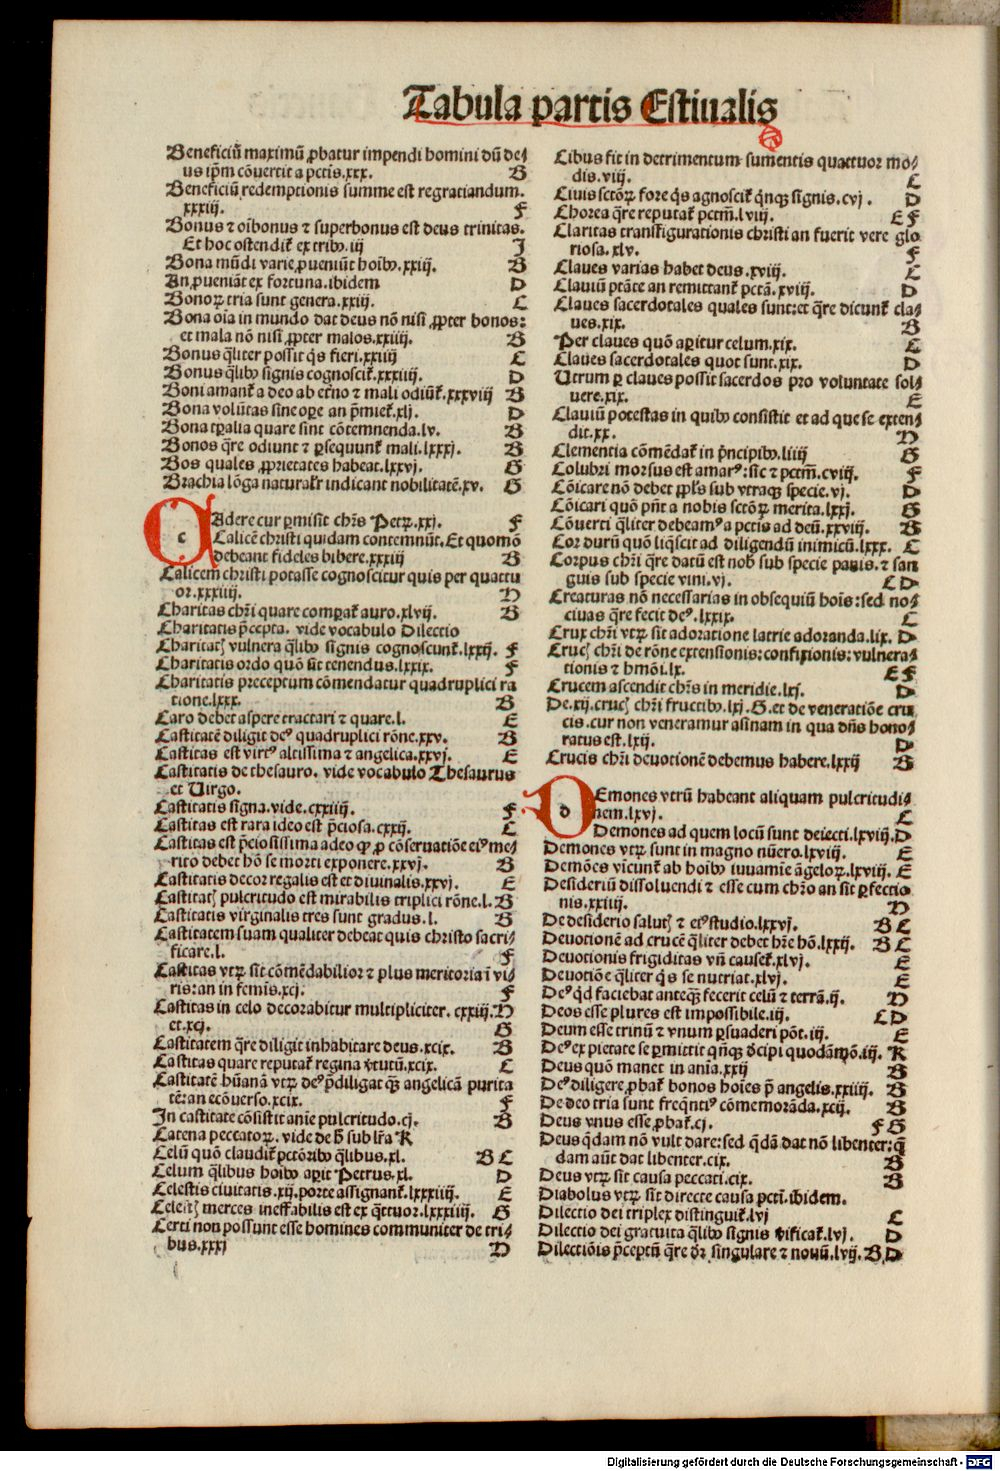 Tabula partis Estiualis
Beneficiū maximū ꝓbatur impendi homini dū de⸗
us ip̄m cōuertit a pctīs.xxx. B
Beneficiū redemptionis summe est regratiandum.
xxxiij. F
Bonus ⁊ oībonus ⁊ superbonus est deus trinitas.
Et hoc ostendit̄ ex tribꝰ.iij J
Bona mūdi varie ꝓueniūt hoībꝰ.xxiij. B
An ꝓueniāt ex fortuna.ibidem D
Bonoꝝ tria sunt genera.xxiij. C
Bona oīa in mundo dat deus nō nisi ꝓpter bonos:
et mala nō nisi ꝓpter malos.xxiiij. B
Bonus q̄liter possit q̄s fieri.xxiiij C
Bonus q̄libꝰ signis cognoscit̄.xxxiiij. D
Boni amant̄ a deo ab et̄no ⁊ mali odiūt̄.xxxviij B
Bona volūtas sine oꝑe an p̄miet̄.xlj. D
Bona tꝑalia quare sint cōtemnenda.lv. B
Bonos q̄re odiunt ⁊ ꝑsequunt̄ mali.lxxxj. B
Bos quales ꝓprietates habeat.lxxvj. G
Brachia lōga naturalr̄ indicant nobilitatē.xv. G
CAdere cur ꝑmisit chrs̄ Petꝝ.xxj. F
c
Calicē christi quidam contemnūt. Et quomō
debeant fideles bibere.xxxiij B
Calicem christi potasse cognoscitur quis per quattu
or.xxxiiij. H
Charitas chrī quare comparat̄ auro.xlvij. B
Charitatis p̄cepta. vide vocabulo Dilectio
Charitatꝭ vulnera q̄libꝰ signis cognoscunt̄.lxxij. F
Charitatis ordo quō sit tenendus.lxxix. F
Charitatis preceptum cōmendatur quadruplici ra
tione.lxxx. B
Caro debet aspere tractari ⁊ quare.l. E
Castitatē diligit deꝰ quadruplici rōne.xxv. B
Castitas est virtꝰ altissima ⁊ angelica.xxvj. E
Castitatis de thesauro. vide vocabulo Thesaurus
et Virgo.
Castitatis signa.vide.cxxiiij. F
Castitas est rara ideo est p̄ciosa.cxxij. C
Castitas est p̄ciosissima adeo ꝙ ꝓ cōseruatiōe eiꝰ me⸗
rito debet hō se morti exponere.xxvj. B
Castitatis decor regalis est et diuinalis.xxvj. E
Castitatꝭ pulcritudo est mirabilis triplici rōne.l. B
Castitatis virginalis tres sunt gradus.l. B
Castitatem suam qualiter debeat quis christo sacri⸗
ficare.l. F
Castitas vtꝝ sit cōmēdabilior ⁊ plus meritoria ī vi⸗
ris:an in femīs.xcj. F
Castitas in celo decorabitur multipliciter. cxxiij. H
et.xcj. G
Castitatem q̄re diligit inhabitare deus.xcix. B
Castitas quare reputat̄ regina v̄tutū.xcix. C
Castitatē hūanā vtꝝ deꝰ p̄diligat qꝫ angelicā purita
tē:an ecōuerso.xcix. F
In castitate cōsistit anīe pulcritudo.cj. B
Catena peccatoꝝ. vide de h̄ sub lr̄a K
Celū quō claudit̄ pctōribꝰ q̄libus.xl. B C
Celum q̄libus hoībꝰ aꝑit Petrus.xl. D
Celestis ciuitatis.xij.porte assignant̄.lxxxiiij. E
Celestꝭ merces ineffabilis est ex q̄ttuor.lxxxiiij. G
Certi non possunt esse homines communiter de tri⸗
bus.xxxj H
Cibus fit in detrimentum sumentis quattuor mo⸗
dis.viij. C
Ciuis sctōꝝ fore q̄s agnoscit̄ q̄nqꝫ signis.cvj. D
Chorea q̄re reputat̄ pctm̄.lviij. E F
Claritas transfigurationis christi an fuerit vere glo
riosa.xlv. F
Claues varias habet deus.xviij. C
Clauiū ptāte an remittant̄ pctā.xviij. D
Claues sacerdotales quales sunt:et q̄re dicunt̄ cla⸗
ues.xix. B
Per claues quō aꝑitur celum.xix. C
Claues sacerdotales quot sunt.xix. D
Vtrum ꝑ claues possit sacerdos pro voluntate sol⸗
uere.xix. E
Clauiū potestas in quibꝰ consistit et ad que se exten⸗
dit.xx. H
Clementia cōmēdat̄ in p̄ncipibꝰ.liiij G
Colubri morsus est amarꝰ:sic ⁊ pctm̄.cviij. F
Cōicare nō debet ꝓpl̄s sub vtraqꝫ specie.vj. D
Cōicari quō pn̄t a nobis sctōꝝ merita.lxxj. G
Cōuerti q̄liter debeamꝰ a pctis ad deū.xxviij. B
Cor durū quō liq̄scit ad diligendū inimicū.lxxx. C
Corpus chrī q̄re datū est nob̄ sub specie panis. ⁊ san
guis sub specie vini.vj. C D
Creaturas nō necessarias in obsequiū hoīs:sed no⸗
ciuas q̄re fecit deꝰ.lxxix. C
Crux chrī vtꝝ sit adoratione latrie adoranda.lix. D
Crucꝭ chrī de rōne extensionis:confixionis:vulnera⸗
tionis ⁊ hmōi.lx. E F
Crucem ascendit chrs̄ in meridie.lxj. D
De.xij.crucꝭ chrī fructibꝰ.lxj.G.et de veneratiōe cru
cis.cur non veneramur asinam in qua dn̄s hono⸗
ratus est.lxij. D
Crucis chrī deuotionē debemus habere.lxxij B
DEmones vtrū habeant aliquam pulcritudi⸗
d
nem.lxvj. C
Demones ad quem locū sunt deiecti.lxviij. D
Demones vtꝝ sunt in magno nūero.lxviij. E
Demōes vīcunt̄ ab hoībꝰ iuuamīe āgeloꝝ.lxviij. E
Desideriū dissoluendi ⁊ esse cum chrō an sit ꝑfectio
nis.xxiiij. H
De desiderio salutꝭ ⁊ eiꝰ studio.lxxvj. B C
Deuotionē ad crucē q̄liter debet hr̄e hō.lxxij. B C
Deuotionis frigiditas vn̄ causet̄.xlvj. E
Deuotiōe q̄liter q̄s se nutriat.xlvj. E
Deꝰ qd̄ faciebat anteqꝫ fecerit celū ⁊ terrā.ij. H
Deos esse plures est impossibile.iij. C D
Deum esse trinū ⁊ vnum ꝑsuaderi pōt.iij. E
Deꝰ ex pietate se ꝑmittit qn̄qꝫ d̄cipi quodāmō.iij. K
Deus quō manet in anīa.xxij B
Deꝰ diligere ꝓbat̄ bonos hoīes p̄ angelis.xxiiij. B
De deo tria sunt freqn̄tiꝰ cōmemorāda.xcij. B
Deus vnus esse ꝓbat̄.cj. F G
Deus q̄dam nō vult dare:sed q̄dā dat nō libenter:q̄
dam aūt dat libenter.cix. B
Deus vtꝝ sit causa peccati.cix. B
Diabolus vtꝝ sit directe causa pctī.ibidem.
Dilectio dei triplex distinguit̄.lvj C
Dilectio dei gratuita q̄libꝰ signis v̄ificat̄.lvj. D
Dilectiōis p̄ceptū q̄re dr̄ singulare ⁊ nouū.lvij. B D
Digitalisierung gefördert durch die Deutsche Forschungsgemeinschaft - DFG